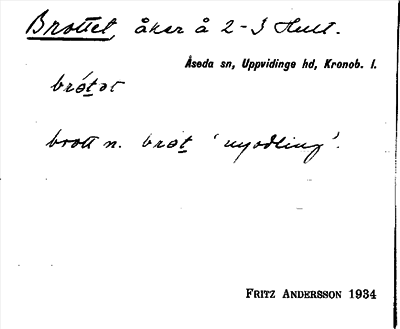 Brottet, åker å 2-3 Hult.
Åseda sn, Uppvidinge hd, Kronob. l.
brótət
brott n. brɷt 'nyodling'.
FRITZ ANDERSSON 1934